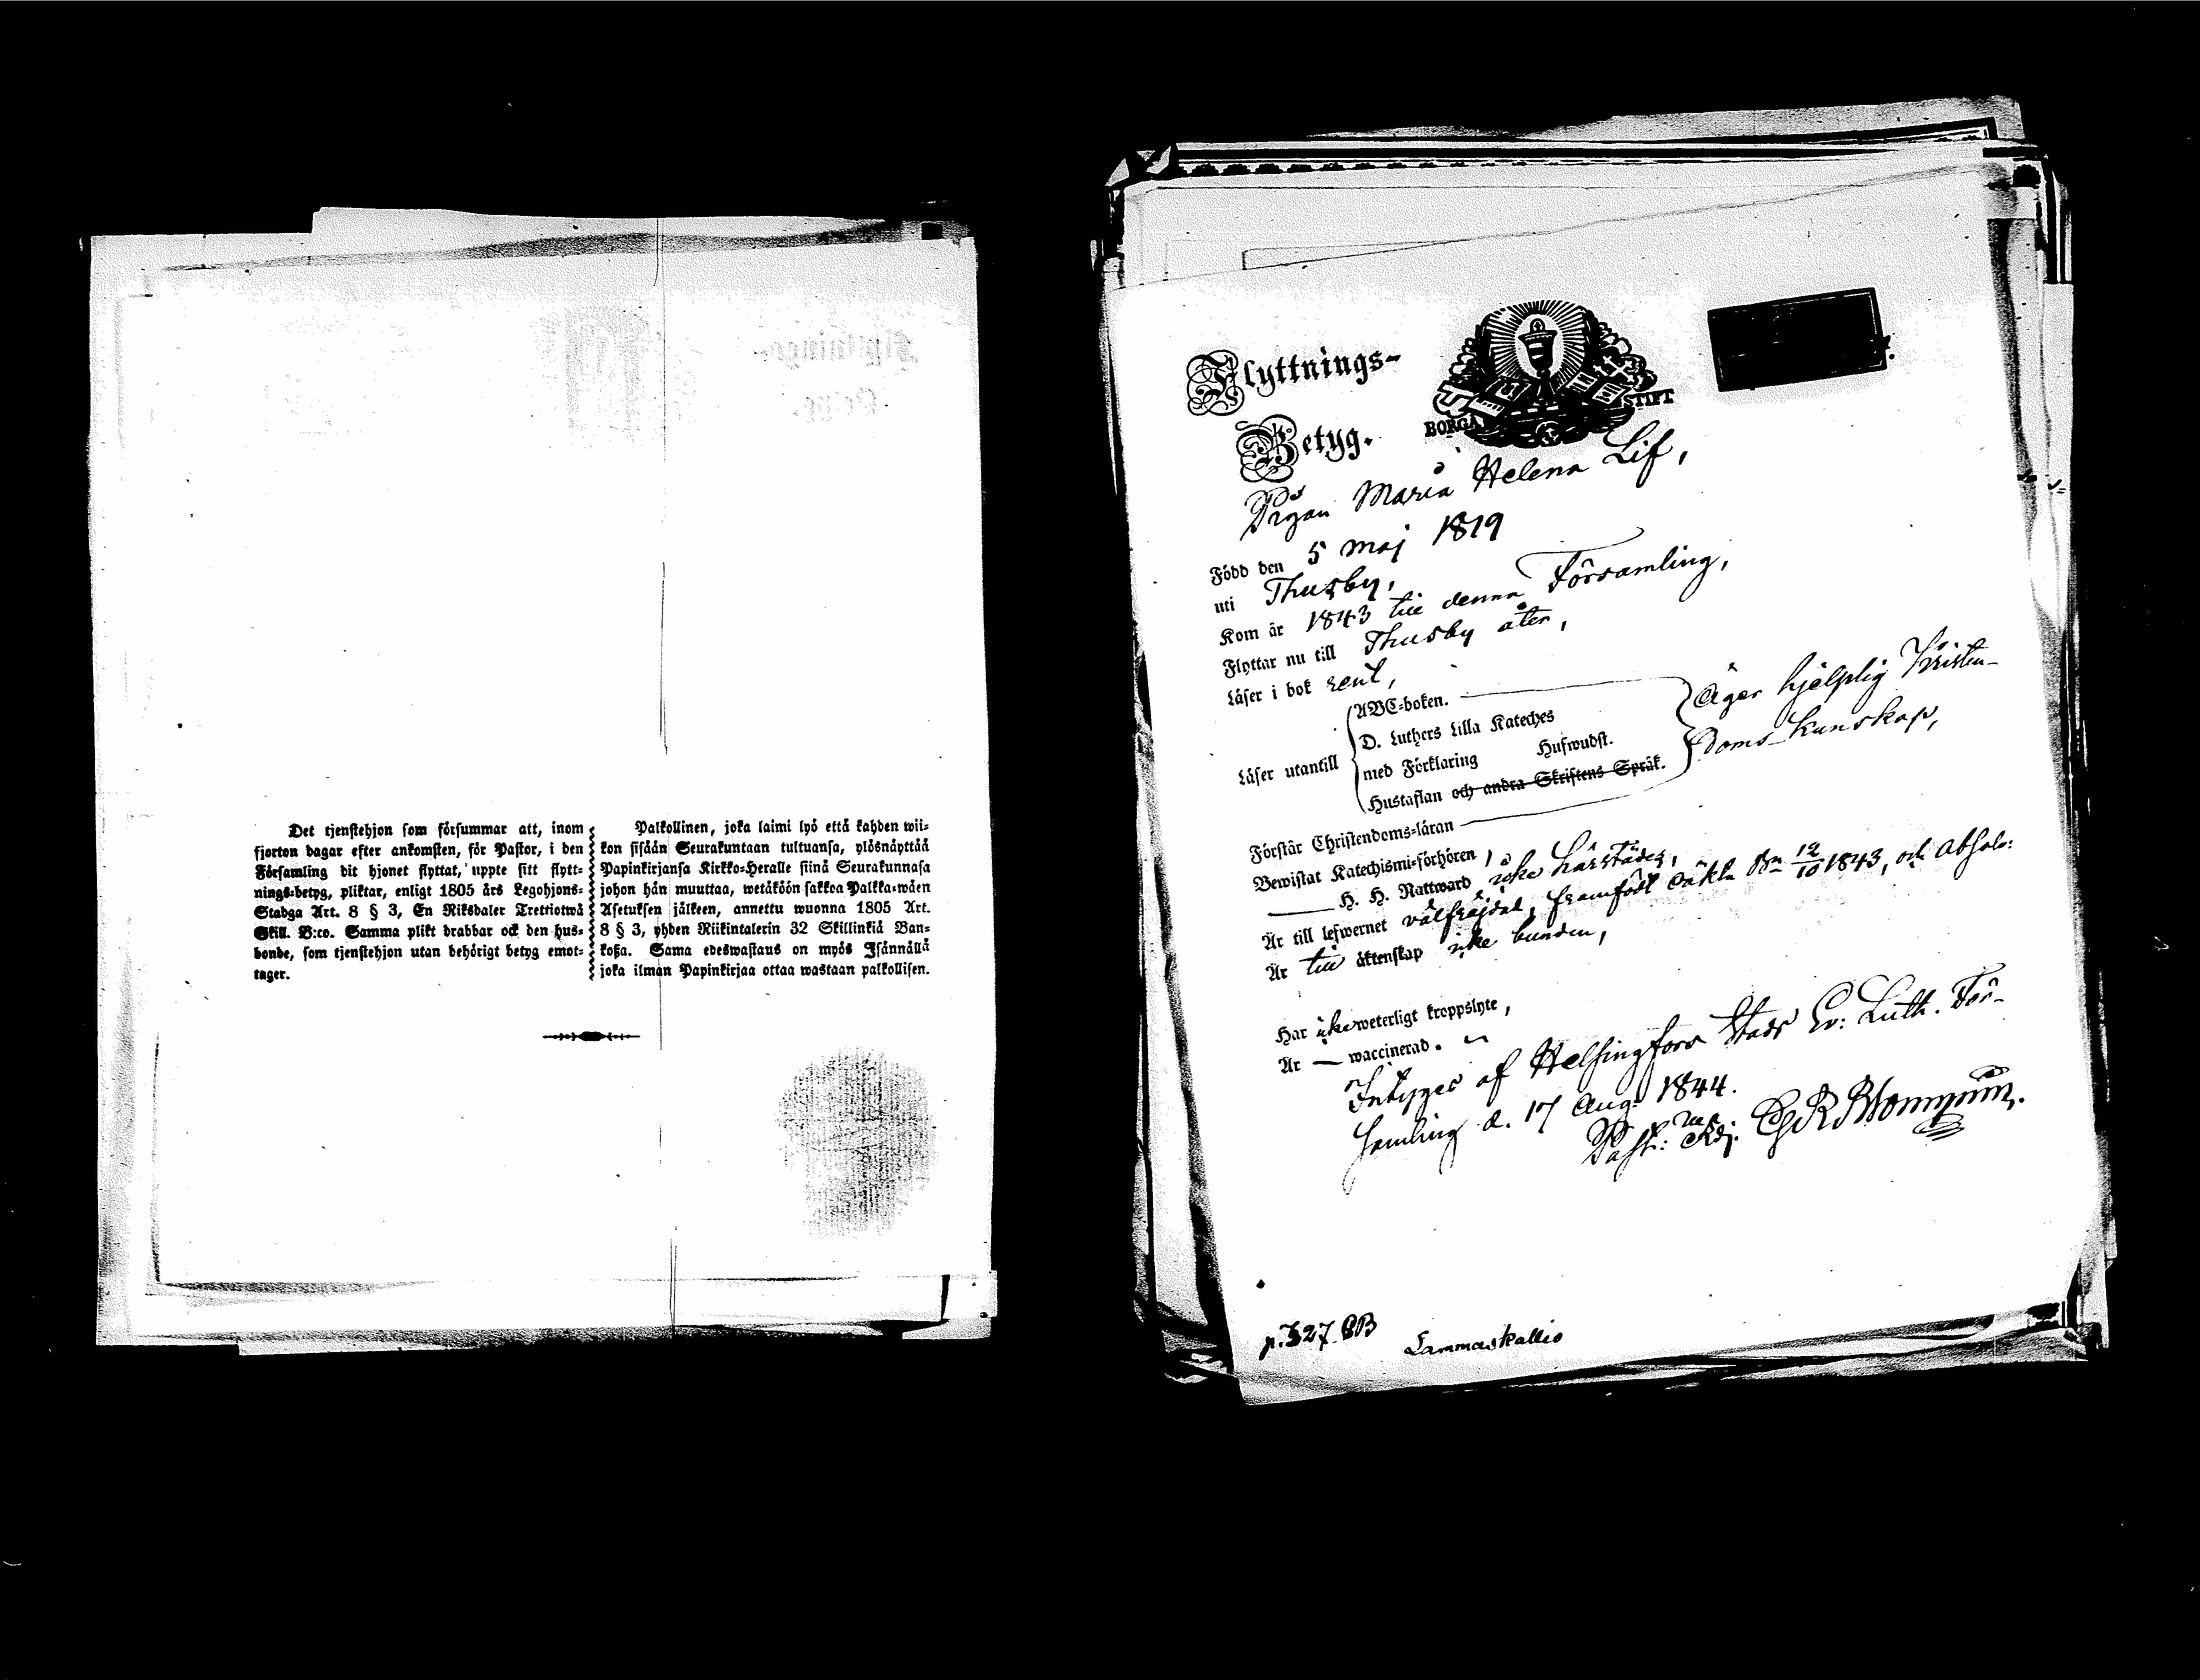 Det tjenstehjon som försummar att, inom
fjorton dagar efter ankomsten, för Pastor, i den
Församling dit hjonet flyttat, uppte sitt flytt-
nings-betyg, pliktar, enligt 1805 års Legohjons-
Stadga Art. 8 § 3, En Riksdaler Trettiotwå
Skill. B:co. Samma plikt drabbar ock den hus-
bonde, som tjenstehjon utan behörigt betyg emot-
tager.
Palkollinen, joka laimi lyö että kahden wii-
kon sisään Seurakuntaan tultuansa, ylösnäyttää
Papinkirjansa Kirkko-Heralle siinä Seurakunnasa
johon hän muuttaa, wetäköön sakkoa Palkka-wäen
Asetuksen jälkeen, annettu wuonna 1805 Art.
8 § 3, yhden Riikintalerin 32 Skillinkiä Ban-
koßa. Sama edeswastaus on myös Isännällä
joka ilman Papinkirjaa ottaa wastaan palkollisen.
Flyttnings-
Betyg.
BORGÅ STIFT
Pigan Maria Helena Lif,
Född den 5 maj 1819
uti Thusby,
Kom år 1843 till denna Församling,
Flyttar nu till Thusby åter,
Läser i bok rent,
Läser utantill
ABC-boken.
D. Luthers Lilla Kateches
med Förklaring Hufwudst.
Hustaflan och andra Skriftens Språk.
Äger hjelplig Kristen-
doms-kunskap,
Förstår Christendoms-läran
Bewistat Katechismi-förhören,
H. H. Nattward icke härstädes,
Är till lefwernet välfräjdad, framfödt oäkta Bn 12/10 1843, och absolv:
Är till äktenskap icke bunden,
Har icke weterligt kroppslyte,
Är — waccinerad.
Intygas af Helsingfors Stads Ev: Luth. För-
samling d. 17 Aug. 1844.
Past: Adj.
p. 327 BB
Lammaskallio